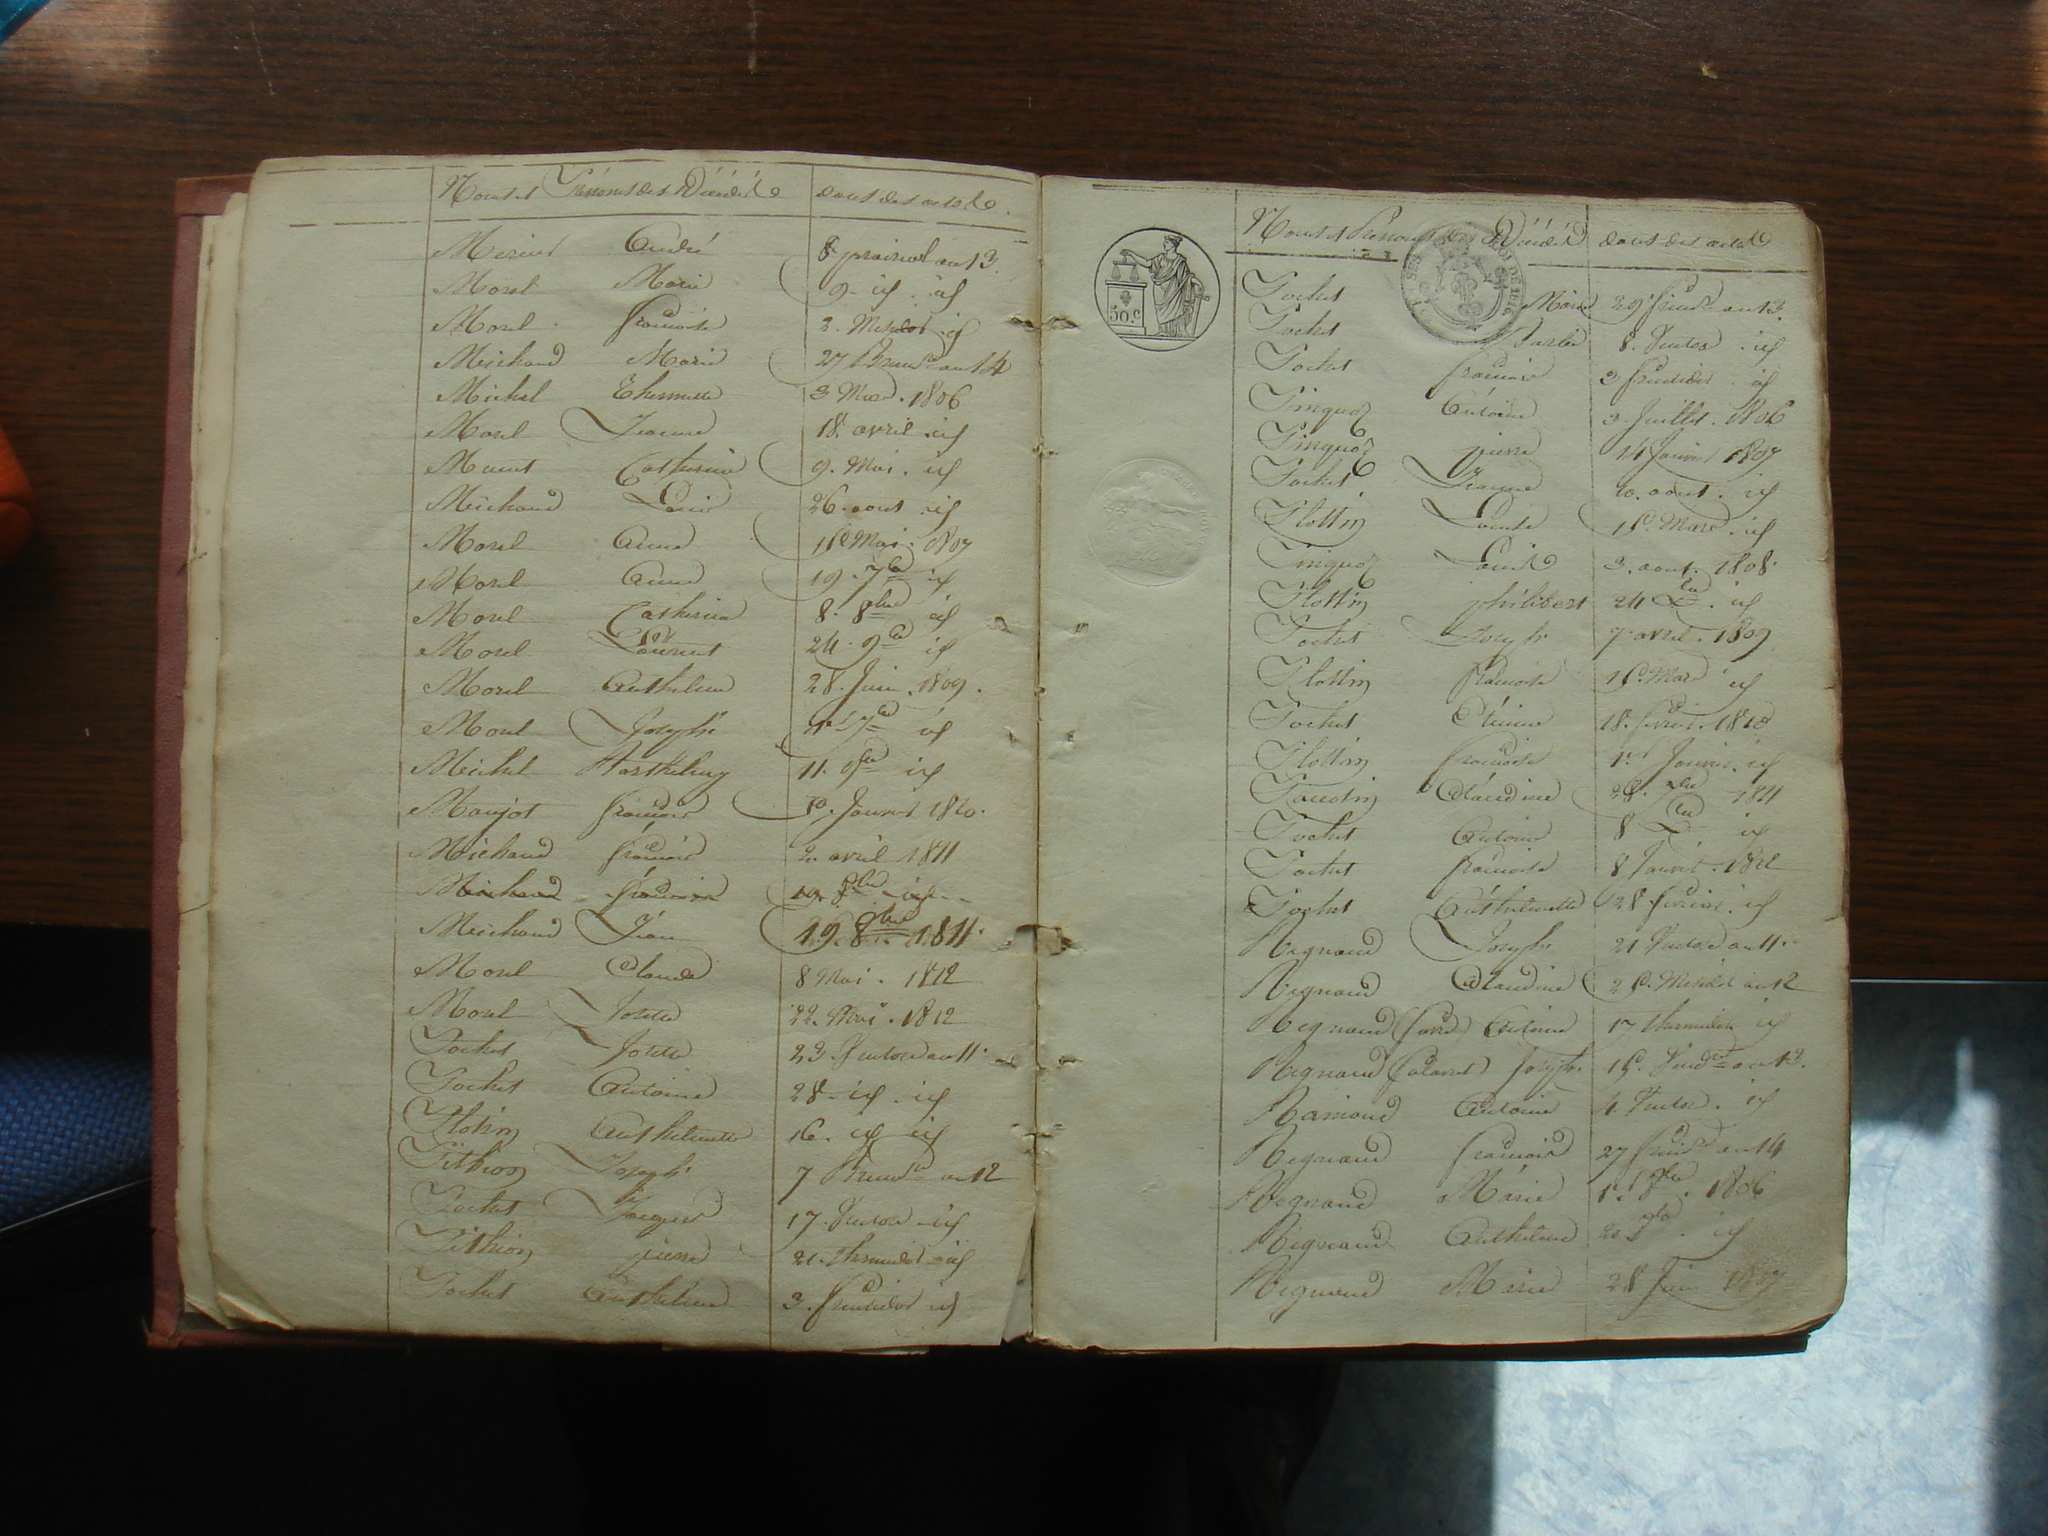 Noms et Prénoms des Décédés dates des actes
André 8 prairial an 13
Morel Marie 9 id id
Morel françoise 2 Messidor id
Michaud Marie 27 Brum.re an 14
Michel Thermette 3 Mars 1806
Morel Jeanne 18 avril id
Catherine 9 Mai id
Michaud Louis 26 aout id
Morel Anne Mai 1807
Morel Anne 19 7bre id
Morel Catherine 8 8bre id
Morel Laurent 24 9bre id
Morel Anthelme 28 Juin 1809
Morel Joseph 7bre id
Michel Barthelemy 11 id
Maujot françois Janvier 1810
Michaud françois 2 avril 1811
Michaud françois 19 8bre id
Michaud Jean 19 8bre 1811
Morel Claude 8 Mai 1812
Morel Josette 22 Mai 1812
Pochet Josette 23 Ventose an 11
Pochet Antoine 28 id id
Plotin Anthelmette 16 id id
Pithion Joseph 7 Brum.re an 12
Pochet Jacques 17 Ventose id
Pithion pierre 21 Thermidor id
Pochet Anthelme 3 fructidor id
50 C
Noms et Prénoms des Décédés dates des actes
Pochet Marie 29 an 13
Pochet 8 Ventose id
Pochet françoise 3 fructidor id
Pinquoz Antoine 3 Juillet 1806
Pinquoz pierre 14 Janvier 1807
Pochet Jeanne 10 aout id
Plottin Louise 15 Mars id
Pinquoz Louise 3 aout 1808
Plottin philibert 24 id
Pochet Joseph 7 avril 1809
Plottin françoise 15 Mars id
Pochet Etienne 18 fevrier 1810
Plottin françoise 1er Janvier id
Claudine 28 1811
Pochet Antoine 8 id
Pochet françoise 8 Janvier 1812
Pochet Anthelmette 28 fevrier id
Regnaud Joseph 21 Ventose an 11
Regnaud Claudine 25 Messidor an 12
Regnaud Antoine 17 thermidor id
Regnaud Joseph 15 an 13
Ramond Antoine 4 Ventose id
Regnaud françois 27 an 14
Regnaud Marie 1er 8bre 1806
Regnaud Anthelme id
Regnaud Marie 28 Juin 1807